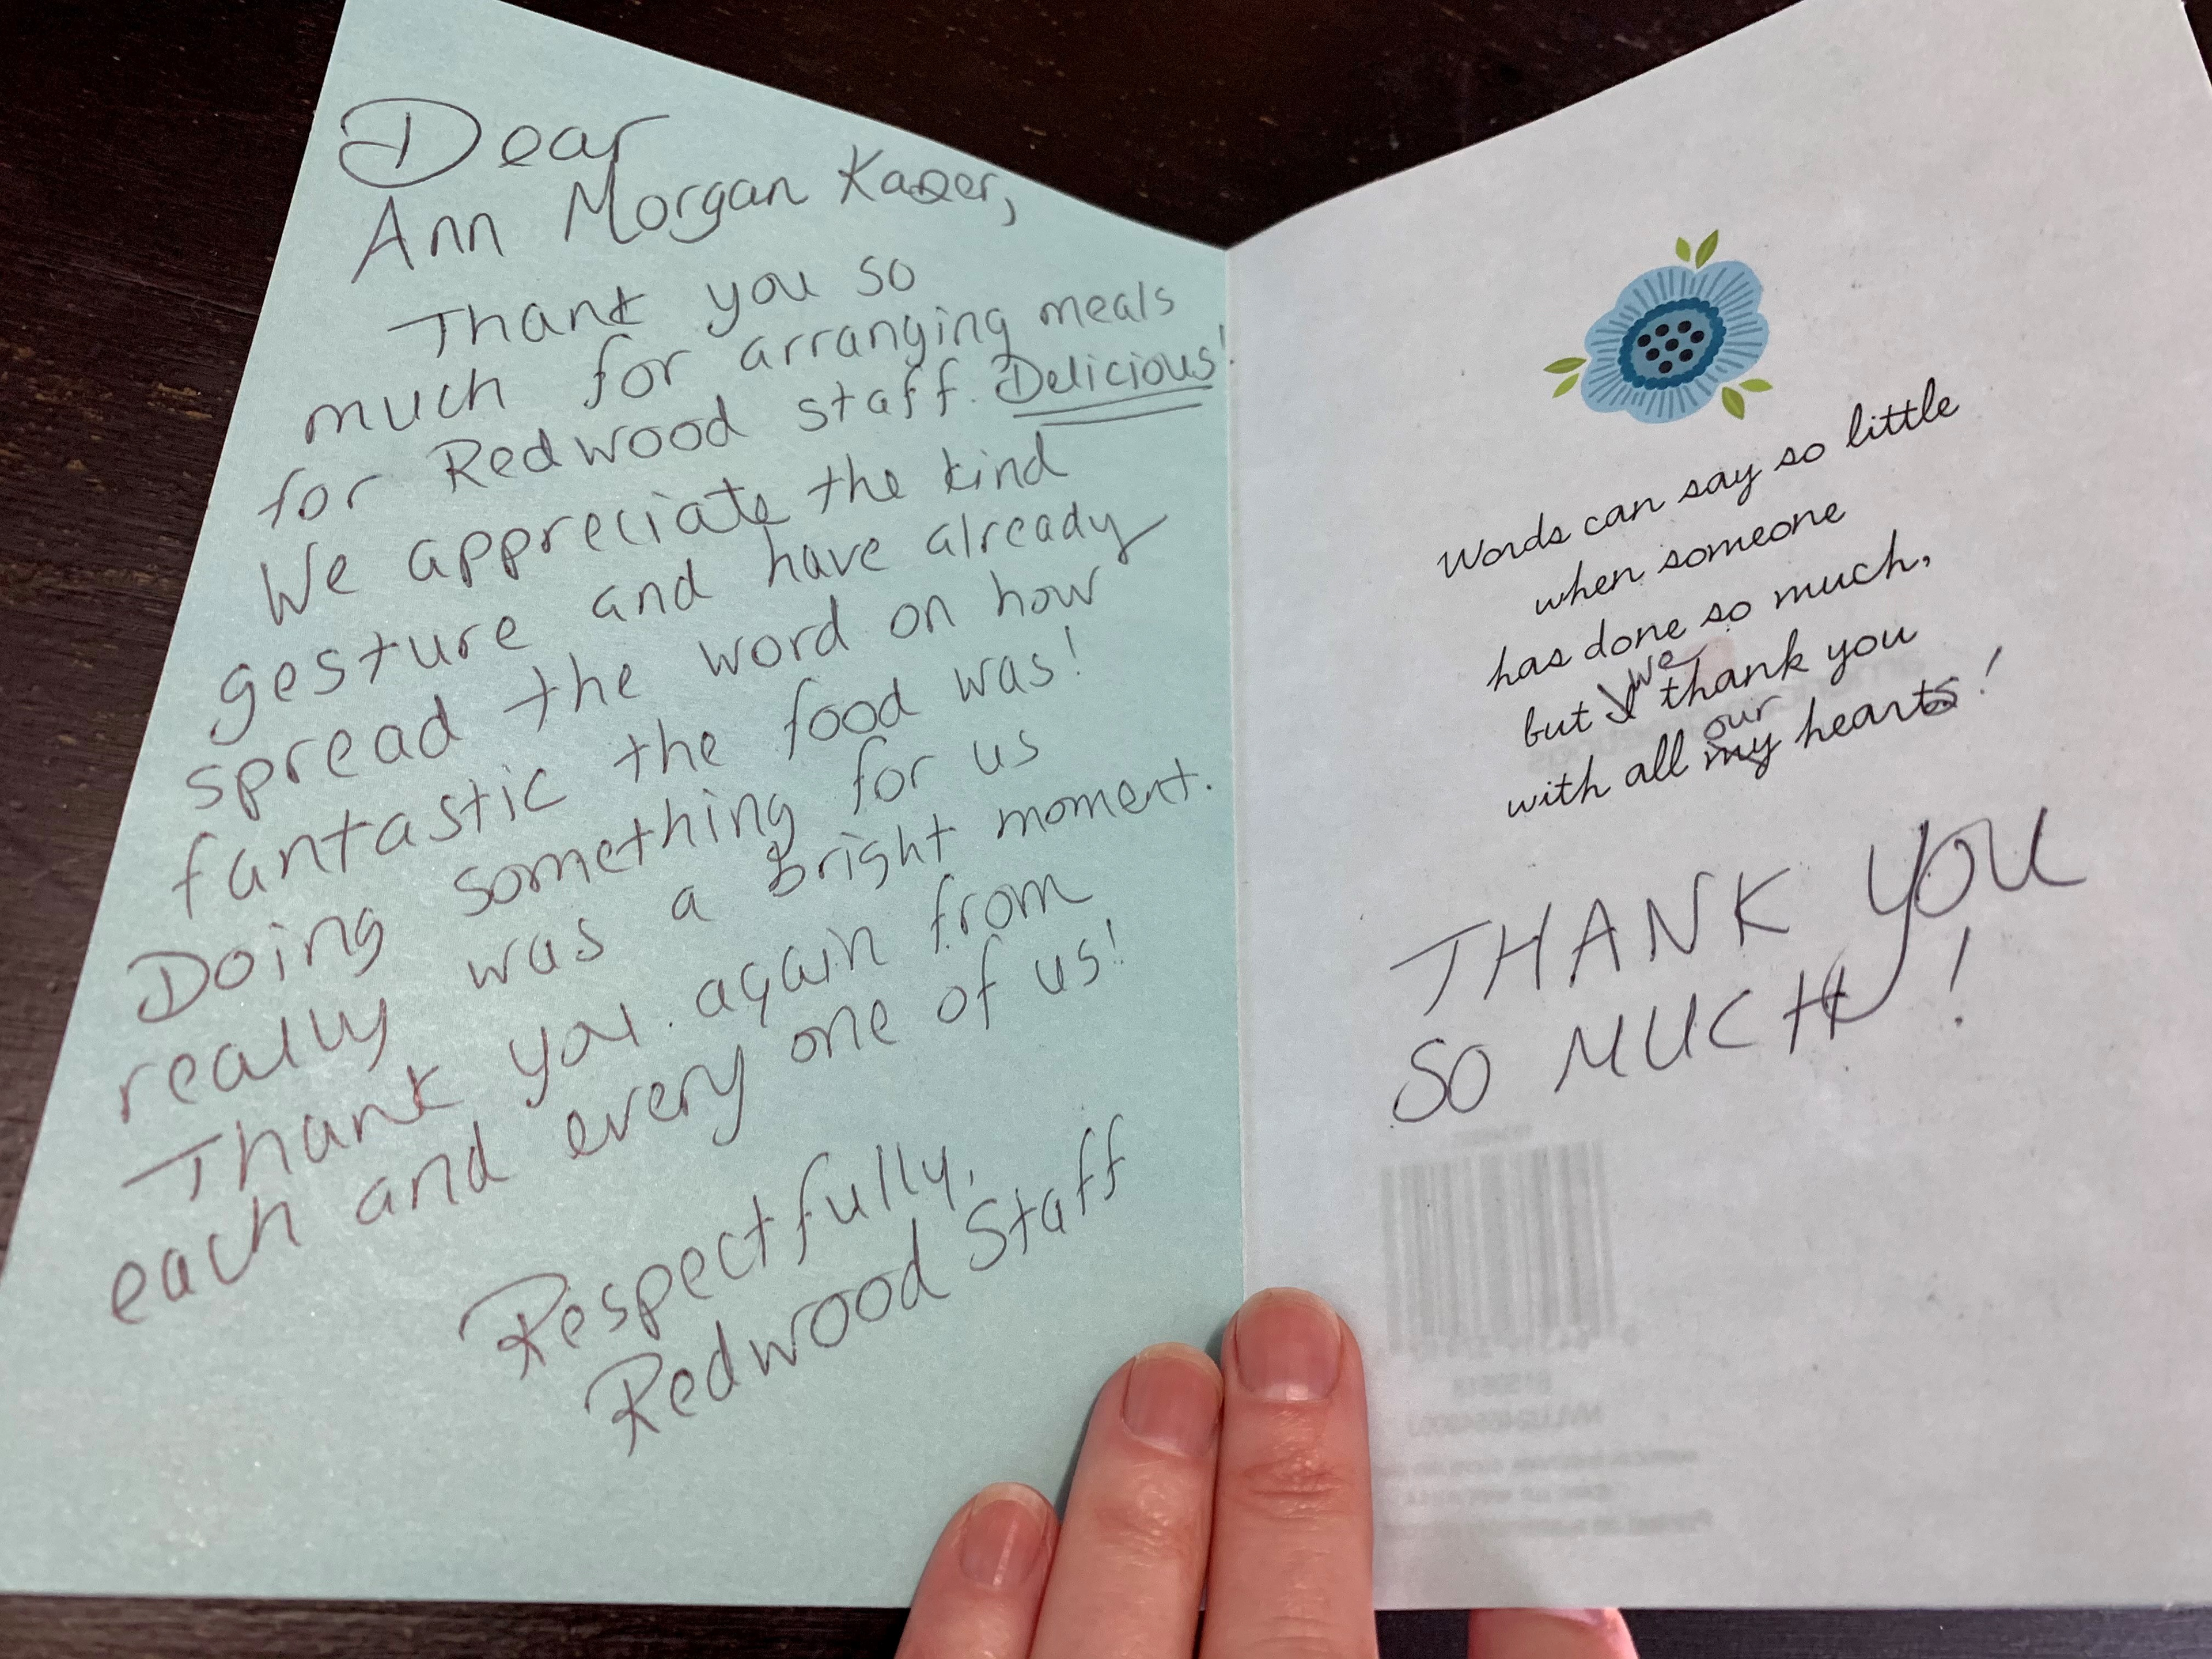 Dear
Ann Morgan Kazer,
Thank you so
much for arranging meals
for Redwood staff. Delicious!
We appreciate the kind
gesture and have already
spread the word on how
fantastic the food was!
Doing something for us
really was a bright moment.
Thank you again from
each and every one of us!
Respectfully,
Redwood Staff
Words can say so little
when someone
has done so much,
but I we thank you
with all my our hearts!
THANK YOU
SO MUCH!